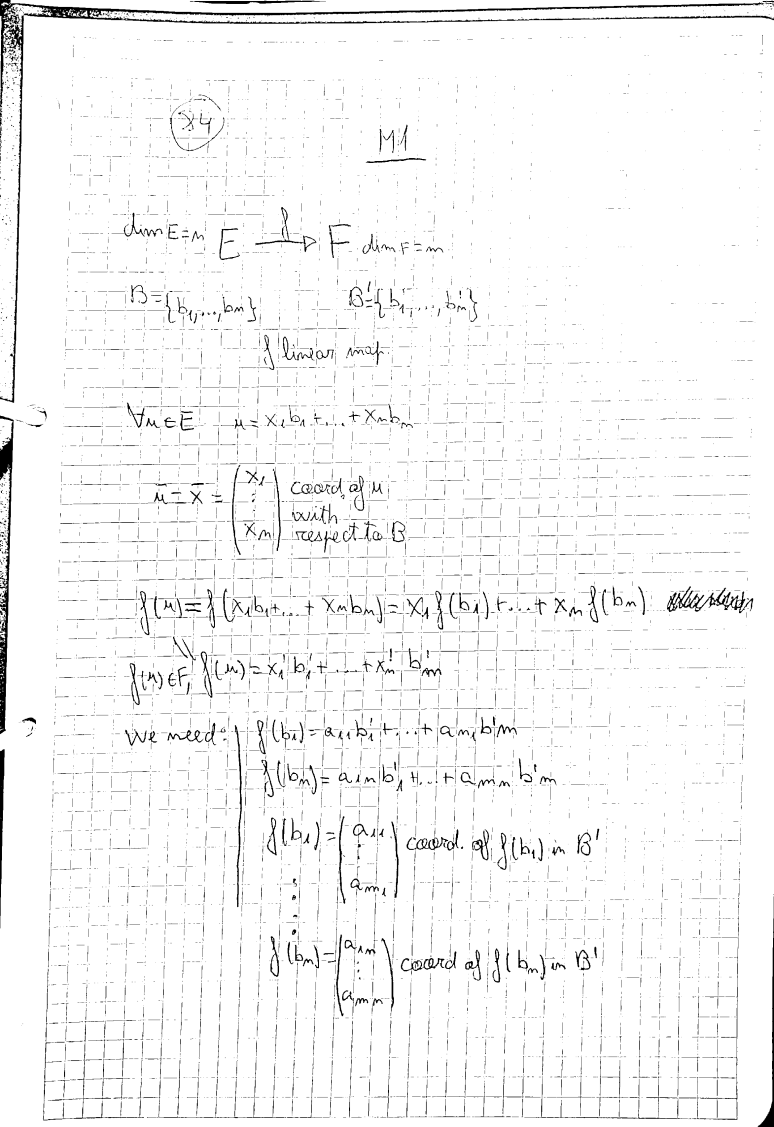 84
M1
dim E=n E —f→ F dim F=m
B={b₁,...,bₙ} B'={b₁',...,b'ₘ}
f linear map
∀u∈E u = x₁b₁+...+xₙbₙ
ū = x̄ = (x₁ ⋮ xₙ) coord. of u with respect to B
f(u) = f(x₁b₁+...+xₙbₙ) = x₁f(b₁)+...+xₙf(bₙ)
f(u)∈F, f(u) = x₁'b₁'+...+xₘ'b'ₘ
We need: f(b₁) = a₁₁b₁'+...+aₘ₁b'm
f(bₙ) = a₁ₙb'₁+...+aₘₙb'm
f(b₁) = (a₁₁ ⋮ aₘ₁) coord. of f(b₁) in B'
⋮
f(bₙ) = (a₁ₙ ⋮ aₘₙ) coord of f(bₙ) in B'